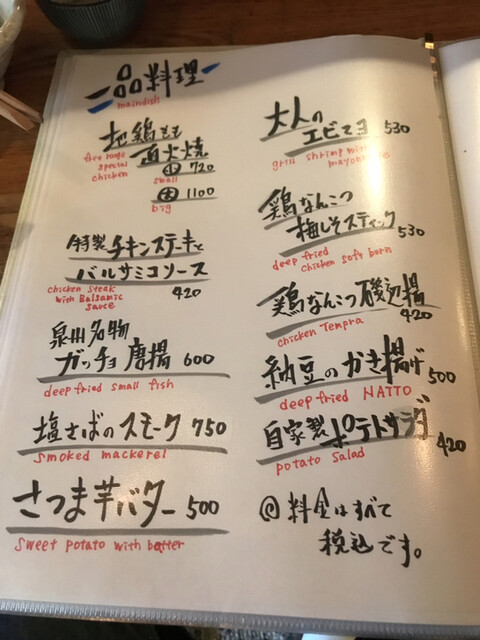 一品料理
maindish
地鶏もも
直火焼
free range
special
chicken
小 720
small
大 1100
big
特製チキンステーキと
バルサミコソース
chicken steak
with Balsamic
sauce
420
泉州名物
ガッチョ唐揚 600
deep fried small fish
塩さばのスモーク 750
smoked mackerel
さつま芋バター 500
sweet potato with batter
大人の
エビマヨ 530
grill shrimp with
mayonnaise
鶏なんこつ
梅しそスティック
530
deep fried
chicken soft born
鶏なんこつ磯辺揚
420
chicken Tempra
納豆のかき揚げ
500
deep fried NATTO
自家製ポテトサラダ
420
potato salad
◎料金はすべて
税込です。